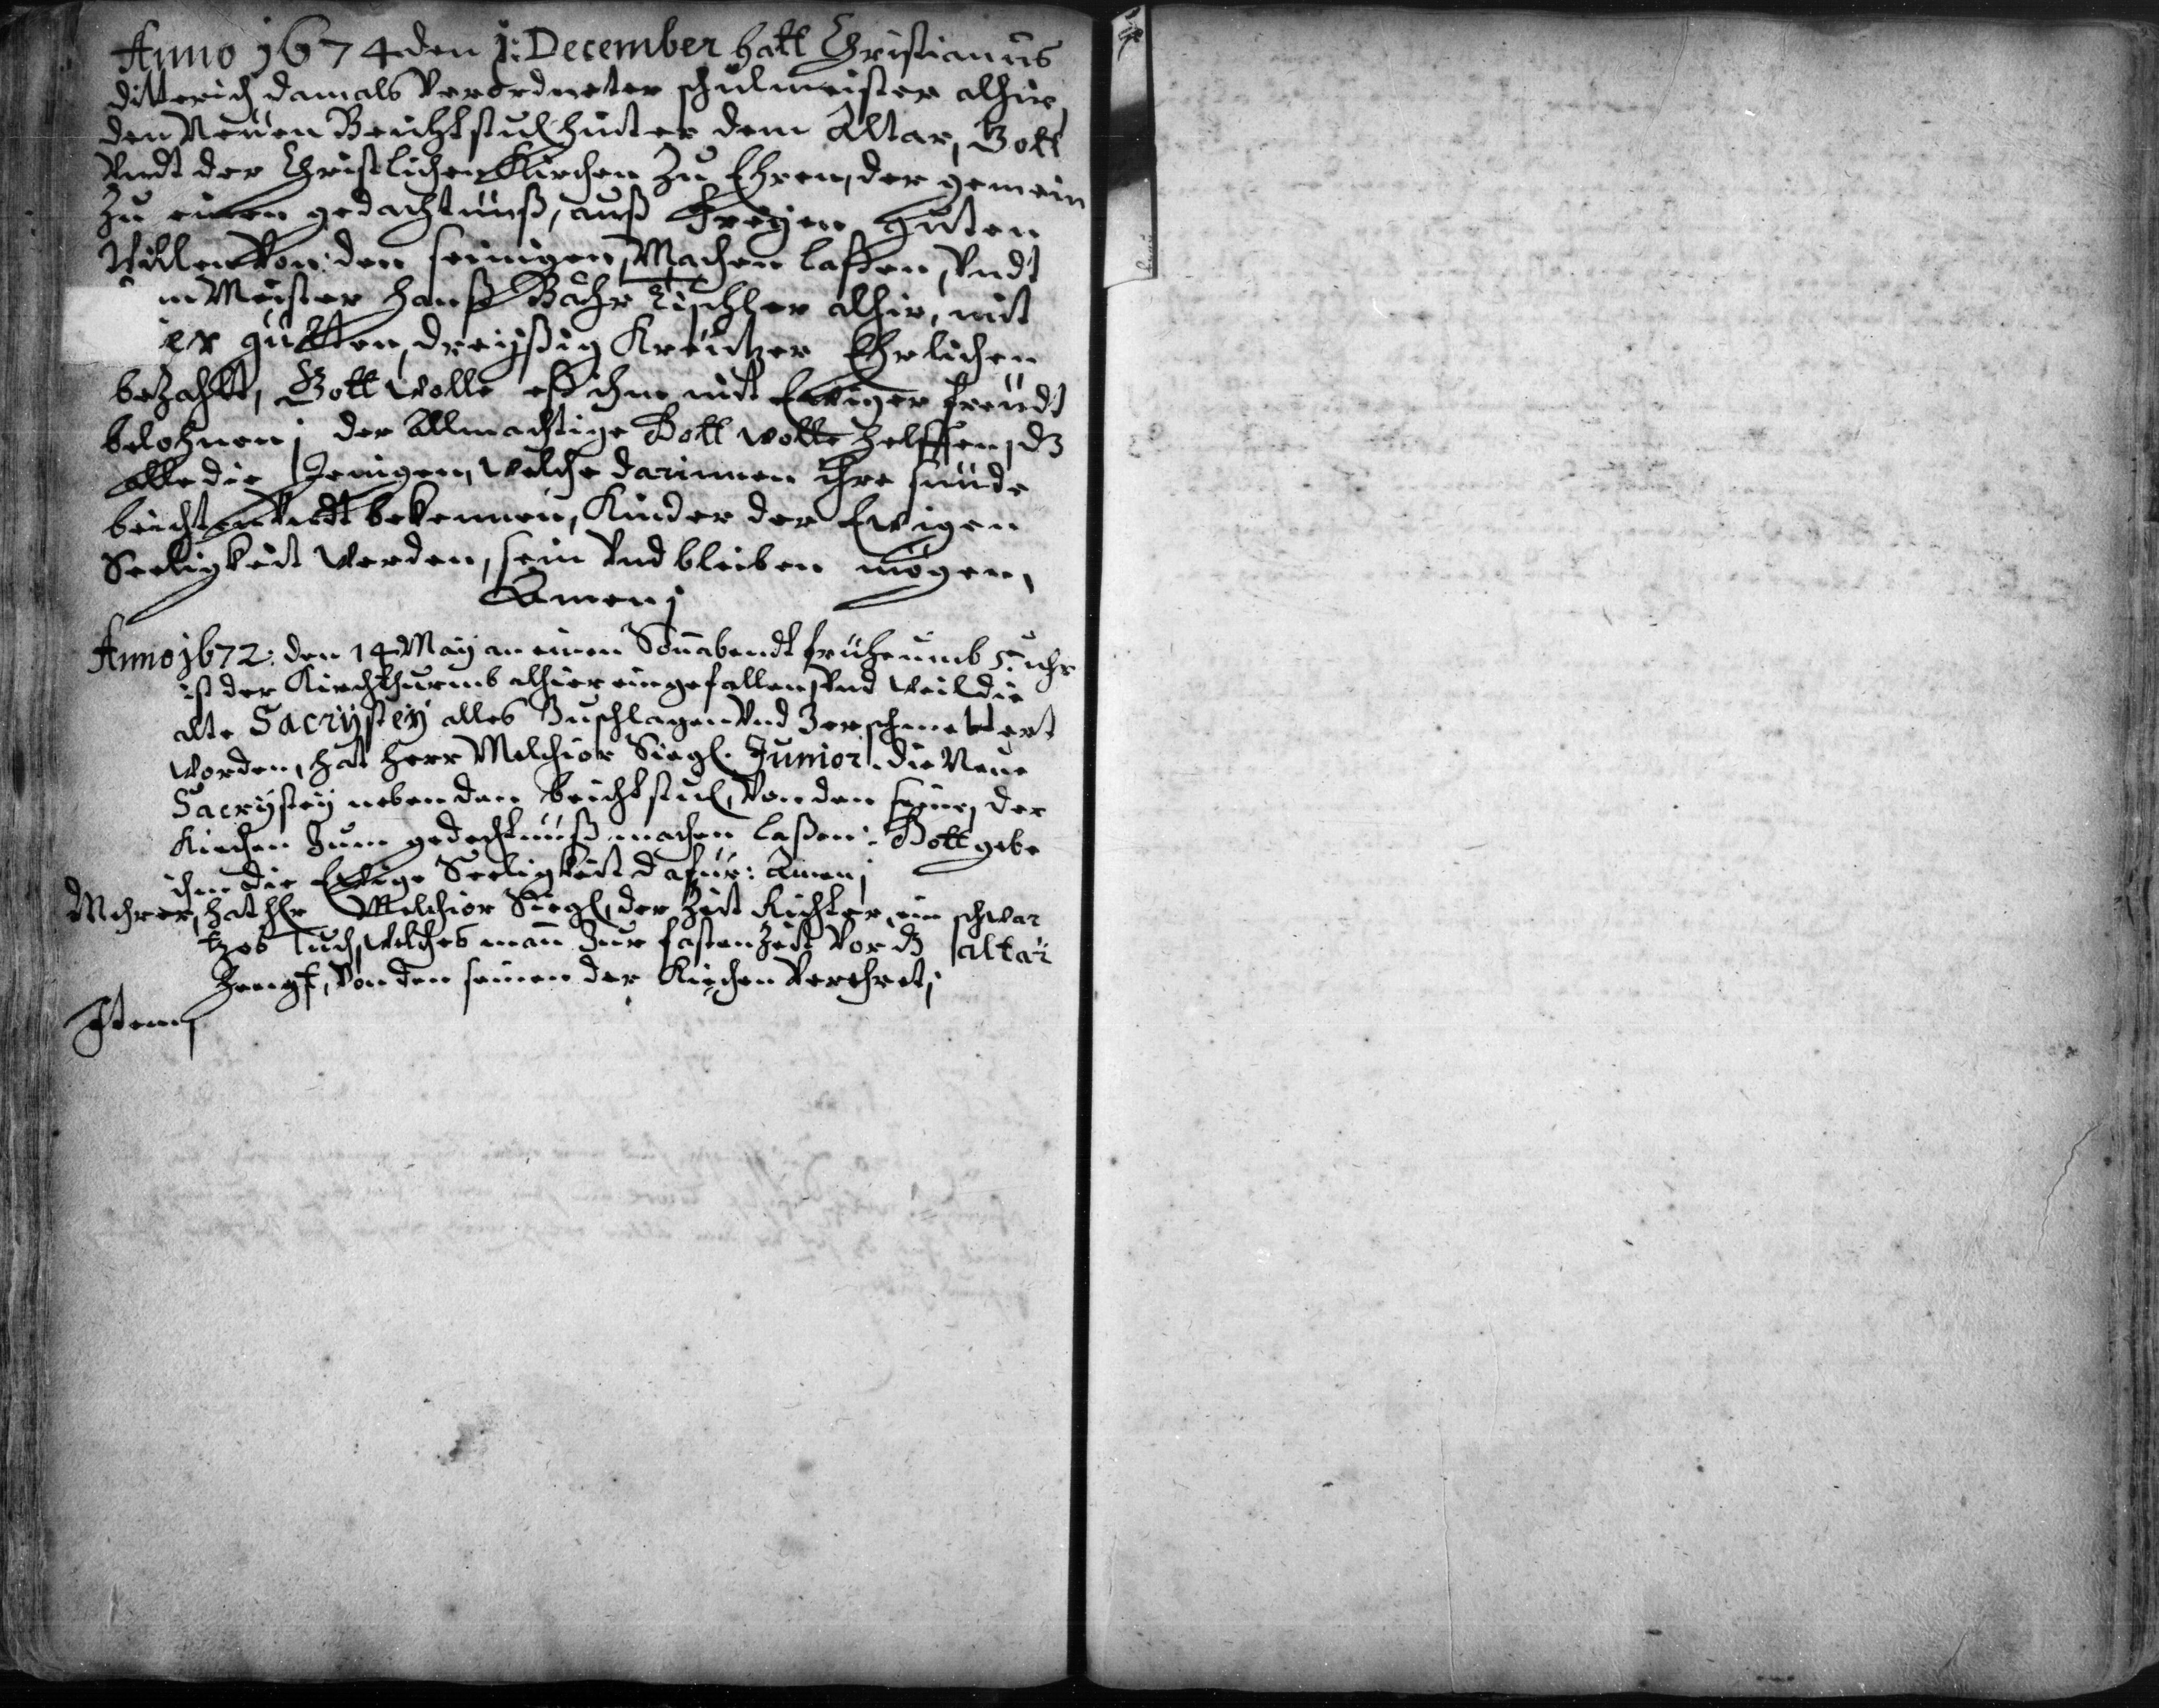 Anno 1674 den 1: December hatt Christianus
Ditterich damals Verordneter schulmeister alhier,
den Neuen Beichtstul hinter dem Altar, Gott
Vndt der Christlichen Kirchen Zu Ehren, der gemein
Zu einen gedachtnuß, auß Freyen guten
Willen Von den seinigen, Machen lassen, Vndt
m Meister Hanß Bähr Tischler alhir, mit
er gultten, dreyßig Kreutzer Ehrlichen
bezahlt, Gott wolle eß ihm mit Ewiger freudt
belohnen; der Allmachtige Gott wolle helffen, dz
alle die Jenigen, Welche darinnen ihre sunde
beichten Vndt bekennen, Kinder der Ewigen
Seeligkeit Werden, sein Vnd bleiben mögen,
Amen;
Anno 1672: den 14 May an einen Sonnabendt frühe umb 5 uhr
ist der Kirchthurmb alhier eingefallen, Vnd Weil die
alte Sacrÿsteÿ alles Zuschlagen Vnd Zerschmettert
Worden, hat Herr Melchior Siegl. Junior. die Neue
Sacrÿsteÿ neben den beichtstul, Von den seine, der
Kirchen Zum gedechtnuß machen laßen: Gott gebe
ihm die Ewige Seeligkeit dafür: Amen;
Mehrer, hat Hr Melchior Siegl, der Zeit Richter, ein schwar
tzes Tuch, Welches mann Zur fastenZeit Vor dz altar
Hengt, Von den seinen der Kirchen Verehret;
Item,